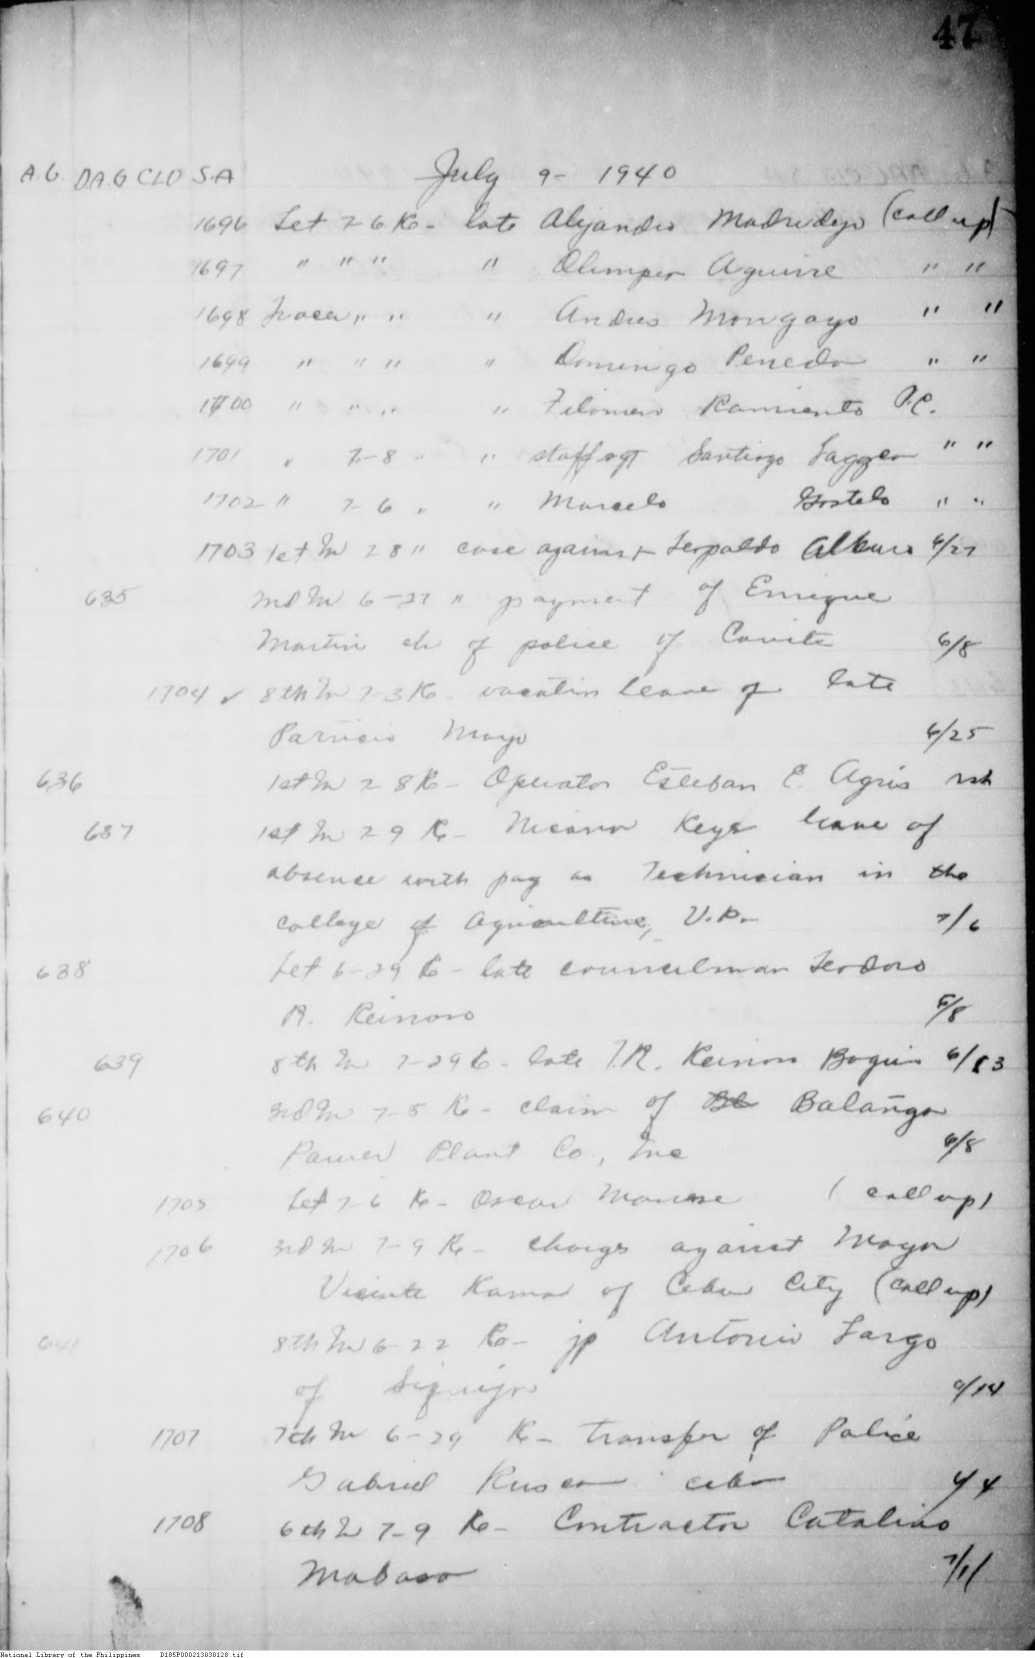 47
A.G. DAG CLO S-A July 9- 1940
1696 Let 7-6 Re- late Alejandro Madridejo (call up)
1697 " " " " Olimpio Aguirre " "
1698 " " " Andres Mongayo " "
1699 " " " " Domingo " "
1700 " " " " Filomeno Ramiento P.C.
1701 " 7-8 " " staff sgt Santiago " "
1702 " 7-6 " " Marcelo " "
1703 1st In 7-8 " case against Leopoldo 6/27
635 3rd In 6-27 " payment of Enrique
Martin ch of police of Cavite 6/8
1704 8th In 7-3 Re- vacation leave of late
Patricio Mayo 6/25
636 1st In 7-8 Re- Operator Esteban E. Agris
637 1st In 7-9 Re- Nicanor Reyes leave of
absence with pay as Technician in the
college of Agriculture, U.P. 7/6
638 Let 6-29 Re- late councilman Teodoro
R. Reinoso 6/8
639 8th In 7-29 Re- late T.R. Reinoso 6/13
640 3rd In 7-5 Re- claim of Balañga
Power Plant Co., Inc 6/8
1705 Let 7-6 Re- Oscar (call up)
1706 3rd In 7-9 Re- charges against Mayor
Vicente Rama of Cebu City (call up)
641 8th In 6-22 Re- jp Antonio Largo
of Siquijor 6/14
1707 7th In 6-29 Re- transfer of Police
Gabriel Cebu
1708 6th In 7-9 Re- Contractor Catalino
Mabaso 7/11
National Library of the Philippines D185P000213030128.tif